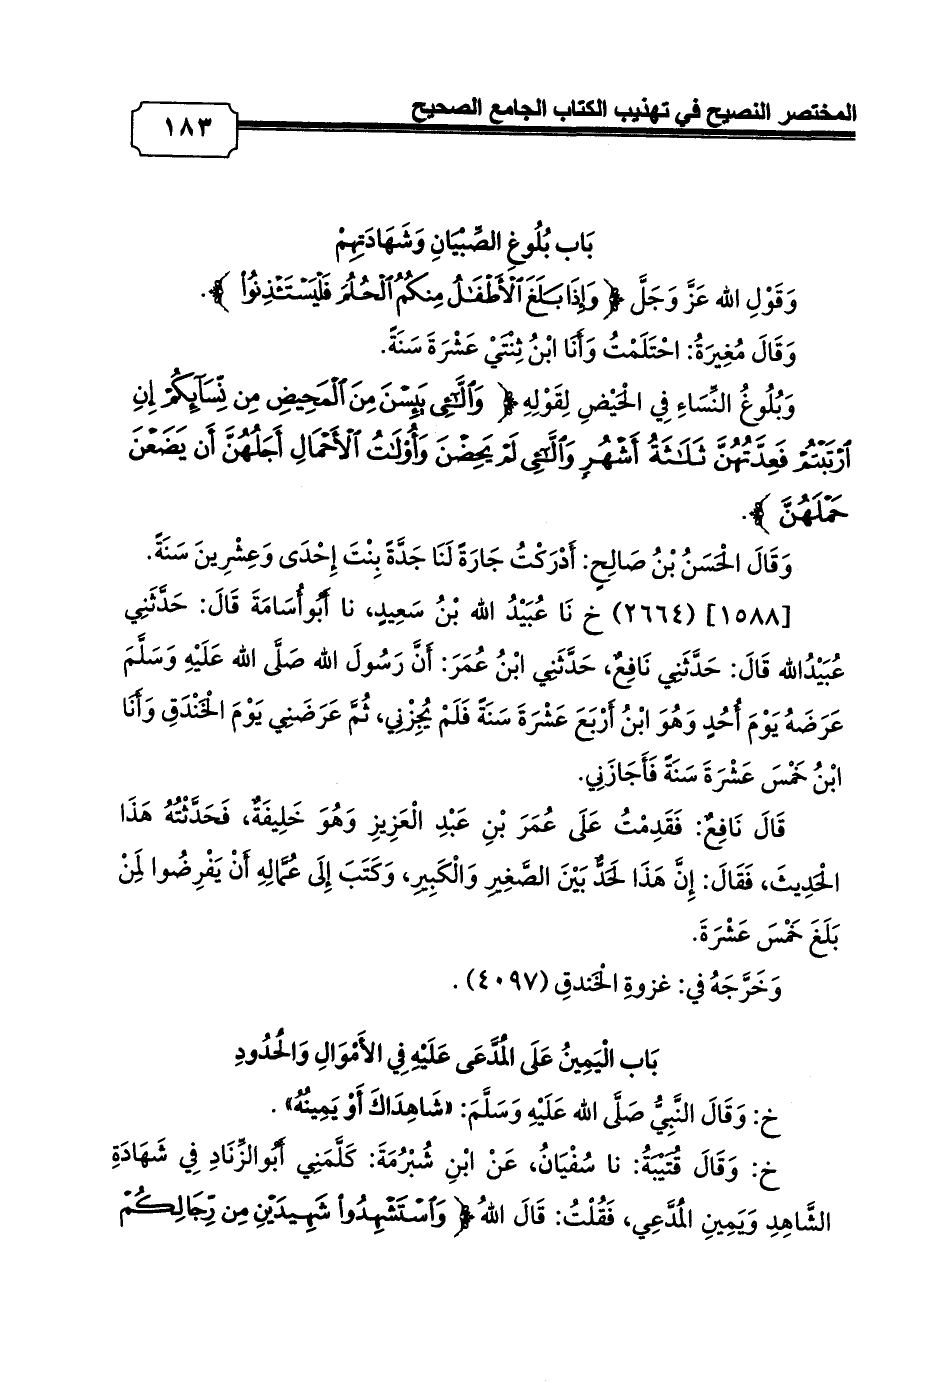 المختصر النصيح في تهذيب الكتاب الجامع الصحيح
١٨٣
بَاب بُلُوغِ الصِّبْيَانِ وَشَهَادَتِهِمْ
وَقَوْلِ الله عَزَّ وَجَلَّ ﴿ وَإِذَا بَلَغَ ٱلْأَطْفَٰلُ مِنكُمُ ٱلْحُلُمَ فَلْيَسْتَـْٔذِنُوا۟ ﴾.
وَقَالَ مُغِيرَةُ: احْتَلَمْتُ وَأَنَا ابْنُ ثِنْتَيْ عَشْرَةَ سَنَةً.
وَبُلُوغُ النِّسَاءِ فِي الْحَيْضِ لِقَوْلِهِ ﴿ وَٱلَّٰٓـِٔى يَئِسْنَ مِنَ ٱلْمَحِيضِ مِن نِّسَآئِكُمْ إِنِ
ٱرْتَبْتُمْ فَعِدَّتُهُنَّ ثَلَٰثَةُ أَشْهُرٍ وَٱلَّٰٓـِٔى لَمْ يَحِضْنَ وَأُو۟لَٰتُ ٱلْأَحْمَالِ أَجَلُهُنَّ أَن يَضَعْنَ
حَمْلَهُنَّ ﴾.
وَقَالَ الْحَسَنُ بْنُ صَالِحٍ: أَدْرَكْتُ جَارَةً لَنَا جَدَّةً بِنْتَ إِحْدَى وَعِشْرِينَ سَنَةً.
[١٥٨٨] (٢٦٦٤) خ نَا عُبَيْدُ الله بْنُ سَعِيدٍ، نا أَبُوأُسَامَةَ قَالَ: حَدَّثَنِي
عُبَيْدُالله قَالَ: حَدَّثَنِي نَافِعٌ، حَدَّثَنِي ابْنُ عُمَرَ: أَنَّ رَسُولَ الله صَلَّى الله عَلَيْهِ وَسَلَّمَ
عَرَضَهُ يَوْمَ أُحُدٍ وَهُوَ ابْنُ أَرْبَعَ عَشْرَةَ سَنَةً فَلَمْ يُجِزْنِي، ثُمَّ عَرَضَنِي يَوْمَ الْخَنْدَقِ وَأَنَا
ابْنُ خَمْسَ عَشْرَةَ سَنَةً فَأَجَازَنِي.
قَالَ نَافِعٌ: فَقَدِمْتُ عَلَى عُمَرَ بْنِ عَبْدِ الْعَزِيزِ وَهُوَ خَلِيفَةٌ، فَحَدَّثْتُهُ هَذَا
الْحَدِيثَ، فَقَالَ: إِنَّ هَذَا لَحَدٌّ بَيْنَ الصَّغِيرِ وَالْكَبِيرِ، وَكَتَبَ إِلَى عُمَّالِهِ أَنْ يَفْرِضُوا لِمَنْ
بَلَغَ خَمْسَ عَشْرَةَ.
وَخَرَّجَهُ في: غزوةِ الخندقِ (٤٠٩٧) .
بَاب الْيَمِينُ عَلَى الْمُدَّعَى عَلَيْهِ فِي الأَمْوَالِ وَالْحُدُودِ
خ: وَقَالَ النَّبِيُّ صَلَّى الله عَلَيْهِ وَسَلَّمَ: «شَاهِدَاكَ أَوْ يَمِينُهُ» .
خ: وَقَالَ قُتَيْبَةُ: نا سُفْيَانُ، عَنْ ابْنِ شُبْرُمَةَ: كَلَّمَنِي أَبُوالزِّنَادِ فِي شَهَادَةِ
الشَّاهِدِ وَيَمِينِ الْمُدَّعِي، فَقُلْتُ: قَالَ اللهُ ﴿ وَٱسْتَشْهِدُوا۟ شَهِيدَيْنِ مِن رِّجَالِكُمْ